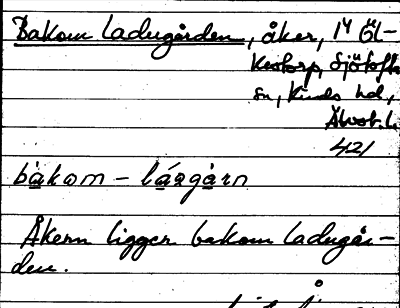 Bakom Ladugården, åker, 1⁴ Öl-
kestorp, Sjötofta
sn, Kinds hd,
Älvsb. l.
421
bàkom – lárgàrn
Åkern ligger bakom ladugår-
den.